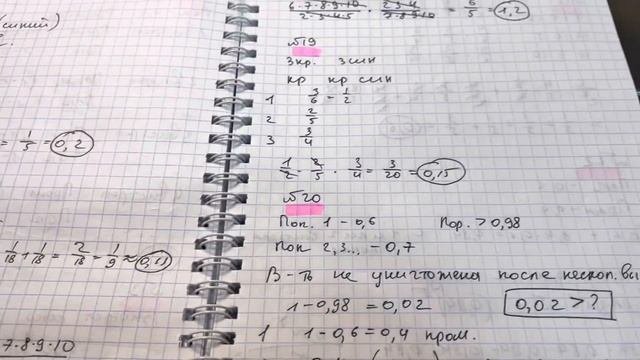 (синий)
= 1/5 = 0,2
1/18 + 1/18 = 2/18 = 1/9 ≈ 0,11
7·8·9·10
6·7·8·9·10 / 2·3·4·5 · 2·3·4 / 7·8·9·10 = 6/5 = 1,2
№19
3кр. 3син
кр кр син
1 3/6 - 1/2
2 2/5
3 3/4
1/2 · 2/5 · 3/4 = 3/20 = 0,15
№20
Поп. 1 - 0,6 Пор. > 0,98
Поп 2,3... - 0,7
В-ть не уничтожена после нескол. вы
1 - 0,98 = 0,02 0,02 > ?
1 1 - 0,6 = 0,4 пром.